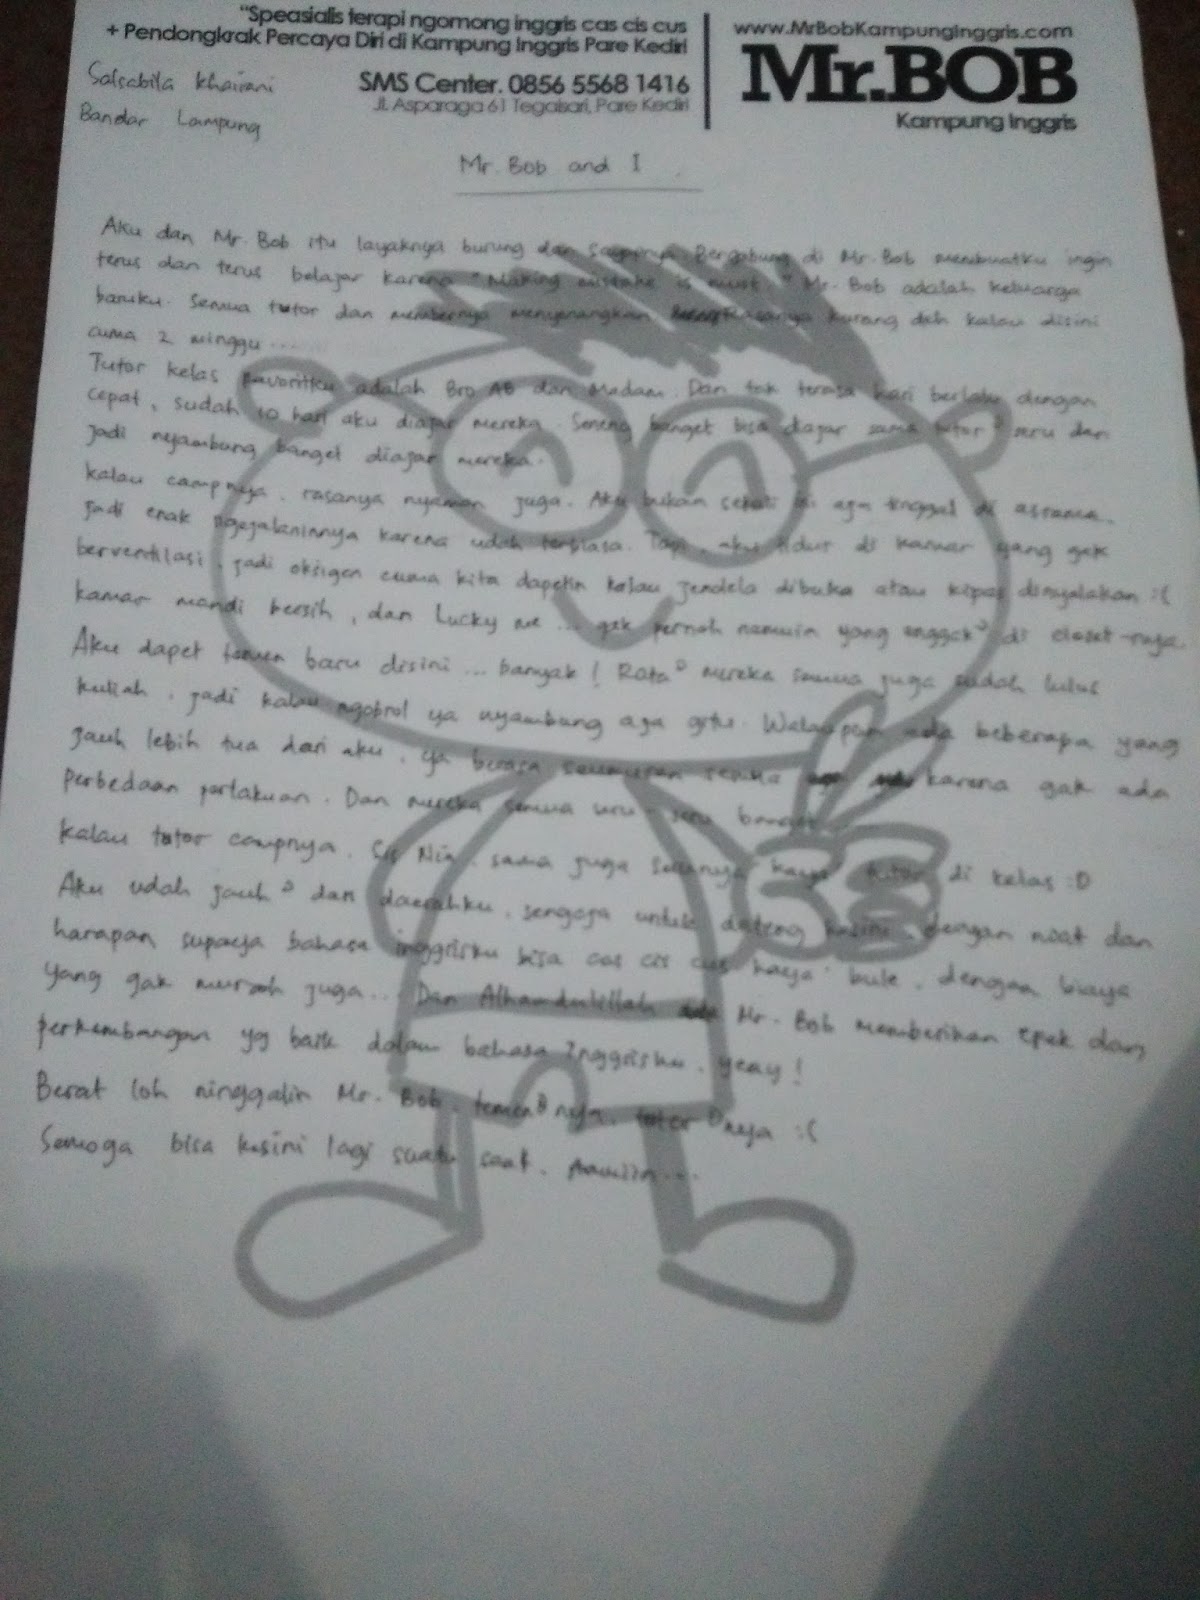 "Speasialis terapi ngomong inggris cas cis cus
+ Pendongkrak Percaya Diri di Kampung Inggris Pare Kediri
SMS Center. 0856 5568 1416
Jl. Asparaga 61 Tegalsari, Pare Kediri
www.MrBobKampungInggris.com
Mr.BOB
Kampung Inggris
Salsabila Khairani
Bandar Lampung
Mr. Bob and I
Aku dan Mr. Bob itu layaknya burung dan sayapnya. Bergabung di Mr. Bob membuatku ingin
terus dan terus belajar karena "Making mistake is must." Mr. Bob adalah keluarga
baruku. Semua tutor dan membernya menyenangkan rasanya kurang deh kalau disini
cuma 2 minggu ...
Tutor kelas favoritku adalah Bro AB dan Madam. Dan tak terasa hari berlalu dengan
cepat, sudah 10 hari aku diajar mereka. Seneng banget bisa diajar sama tutor² seru dan
jadi nyambung banget diajar mereka.
Kalau campnya, rasanya nyaman juga. Aku bukan sekali ini aja tinggal di asrama.
Jadi enak ngejalaninnya karena udah terbiasa. Tapi, aku tidur di kamar yang gak
berventilasi, jadi oksigen cuma kita dapetin kalau jendela dibuka atau kipas dinyalakan :(
Kamar mandi bersih, dan Lucky me ... gak pernah nemuin yang enggak² di closet-nya.
Aku dapet temen baru disini ... banyak! Rata² mereka semua juga sudah lulus
kuliah, jadi kalau ngobrol ya nyambung aja gitu. Walaupun ada beberapa yang
jauh lebih tua dari aku, ya berasa seumuran semua karena gak ada
perbedaan perlakuan. Dan mereka semua seru banget
Kalau tutor campnya, Sis Nia, sama juga serunya kaya tutor di kelas :D
Aku udah jauh² dari daerahku, sengaja untuk dateng kesini, dengan niat dan
harapan supaya bahasa inggrisku bisa cas cis cus kaya bule, dengan biaya
yang gak murah juga... Dan Alhamdulillah Mr. Bob memberikan epek dan
perkembangan yg baik dalam bahasa Inggrisku, yeay!
Berat loh ninggalin Mr. Bob, temen²nya, tutor²nya :(
Semoga bisa kesini lagi suatu saat. Aamiin...